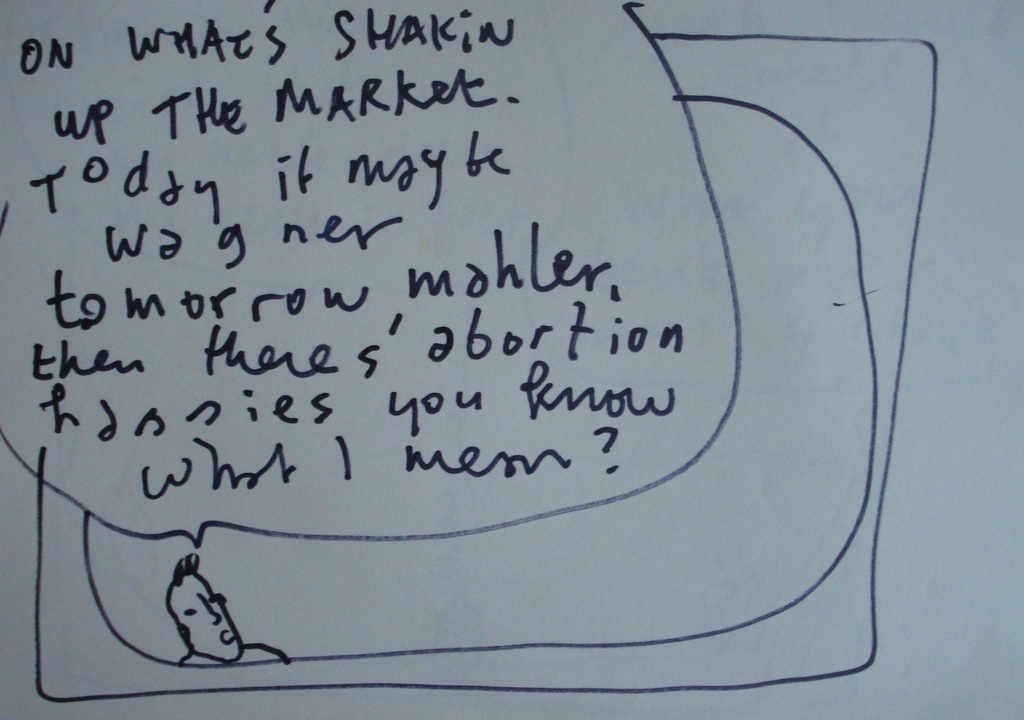 ON WHAT'S SHAKIN
UP THE MARKET.
TOday it may be
wagner
tomorrow mahler,
then theres' abortion
hassies you know
what I mean?